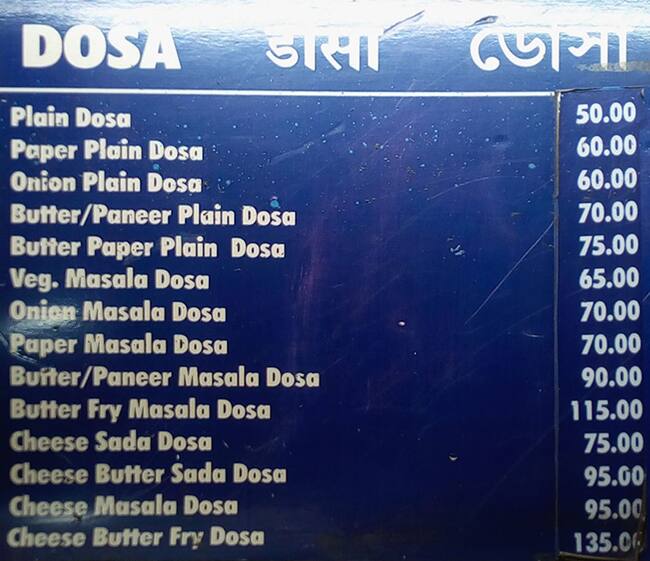 DOSA डोसा ডোসা
Plain Dosa 50.00
Paper Plain Dosa 60.00
Onion Plain Dosa 60.00
Butter/Paneer Plain Dosa 70.00
Butter Paper Plain Dosa 75.00
Veg. Masala Dosa 65.00
Onion Masala Dosa 70.00
Paper Masala Dosa 70.00
Butter/Paneer Masala Dosa 90.00
Butter Fry Masala Dosa 115.00
Cheese Sada Dosa 75.00
Cheese Butter Sada Dosa 95.00
Cheese Masala Dosa 95.00
Cheese Butter Fry Dosa 135.00